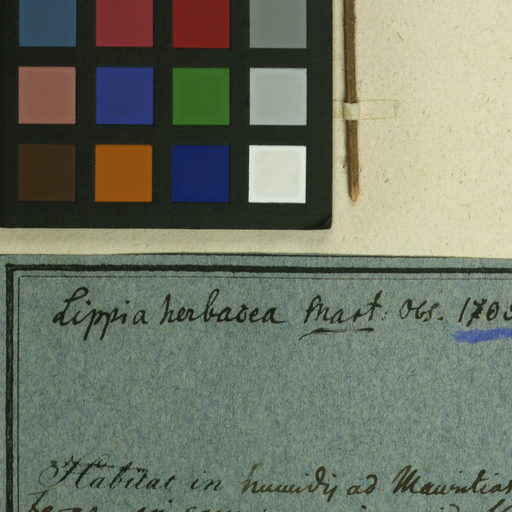 Lippia herbacea Mart: Obs. 1703
Habitat in humidis ad Mauritias